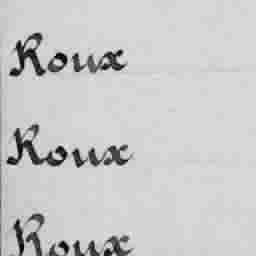 Roux
Roux
Roux